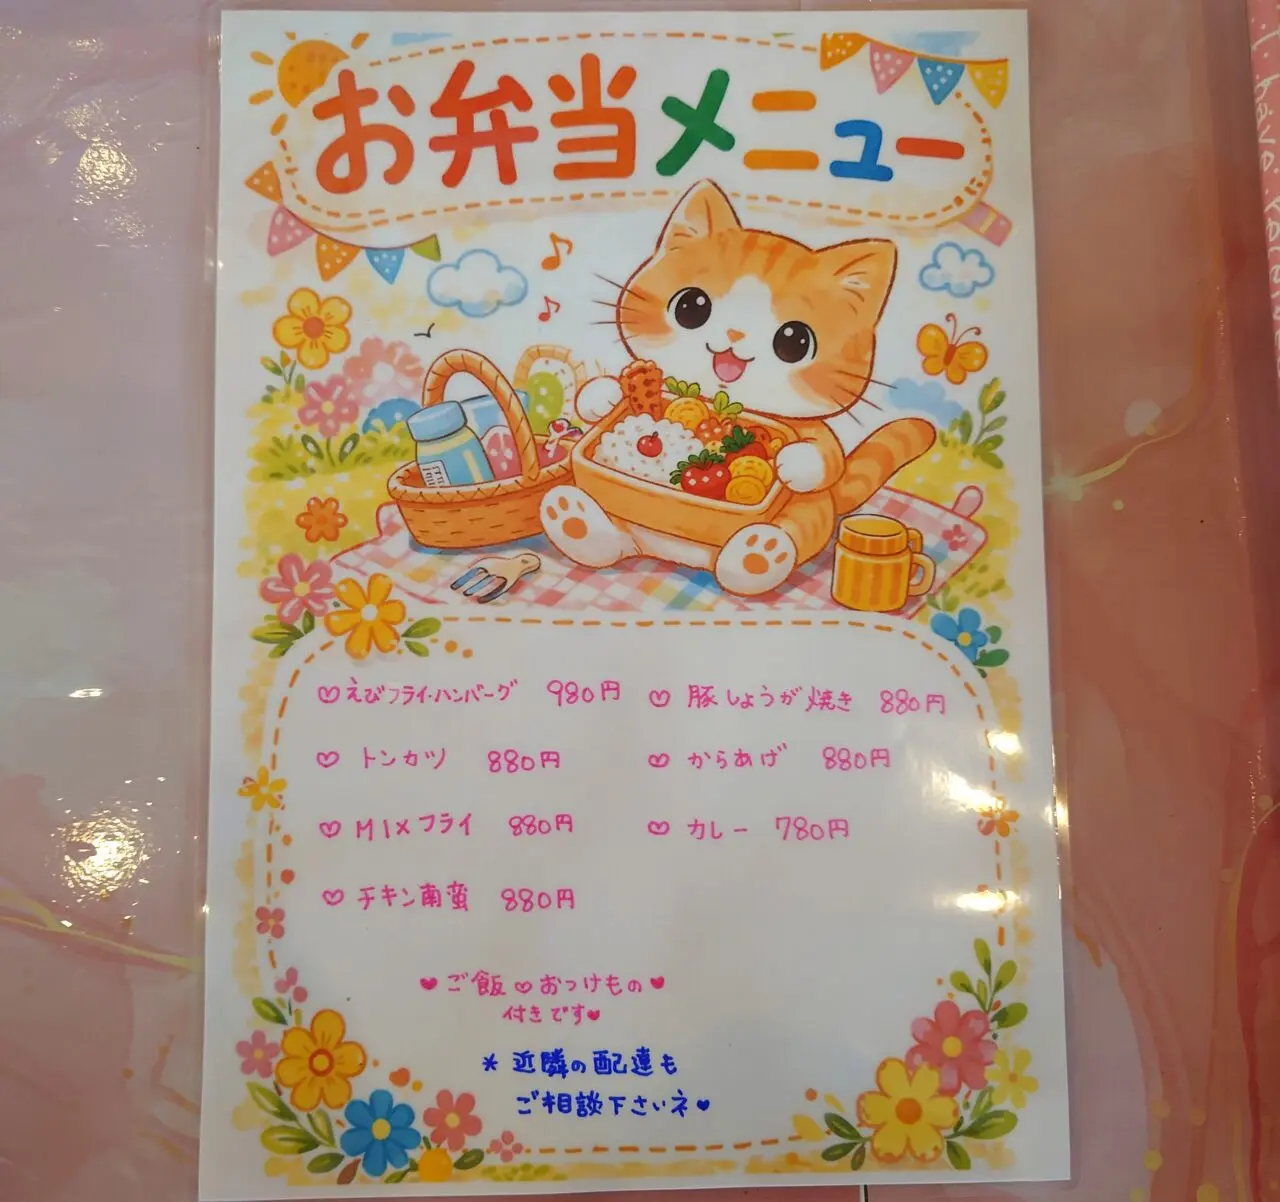 お弁当メニュー
♡えびフライ・ハンバーグ 980円
♡ 豚しょうが焼き 880円
♡ トンカツ 880円
♡ からあげ 880円
♡ MIXフライ 880円
♡ カレー 780円
♡ チキン南蛮 880円
♥ご飯♡おつけもの♥
付きです♥
* 近隣の配達も
ご相談下さいネ♥
I have